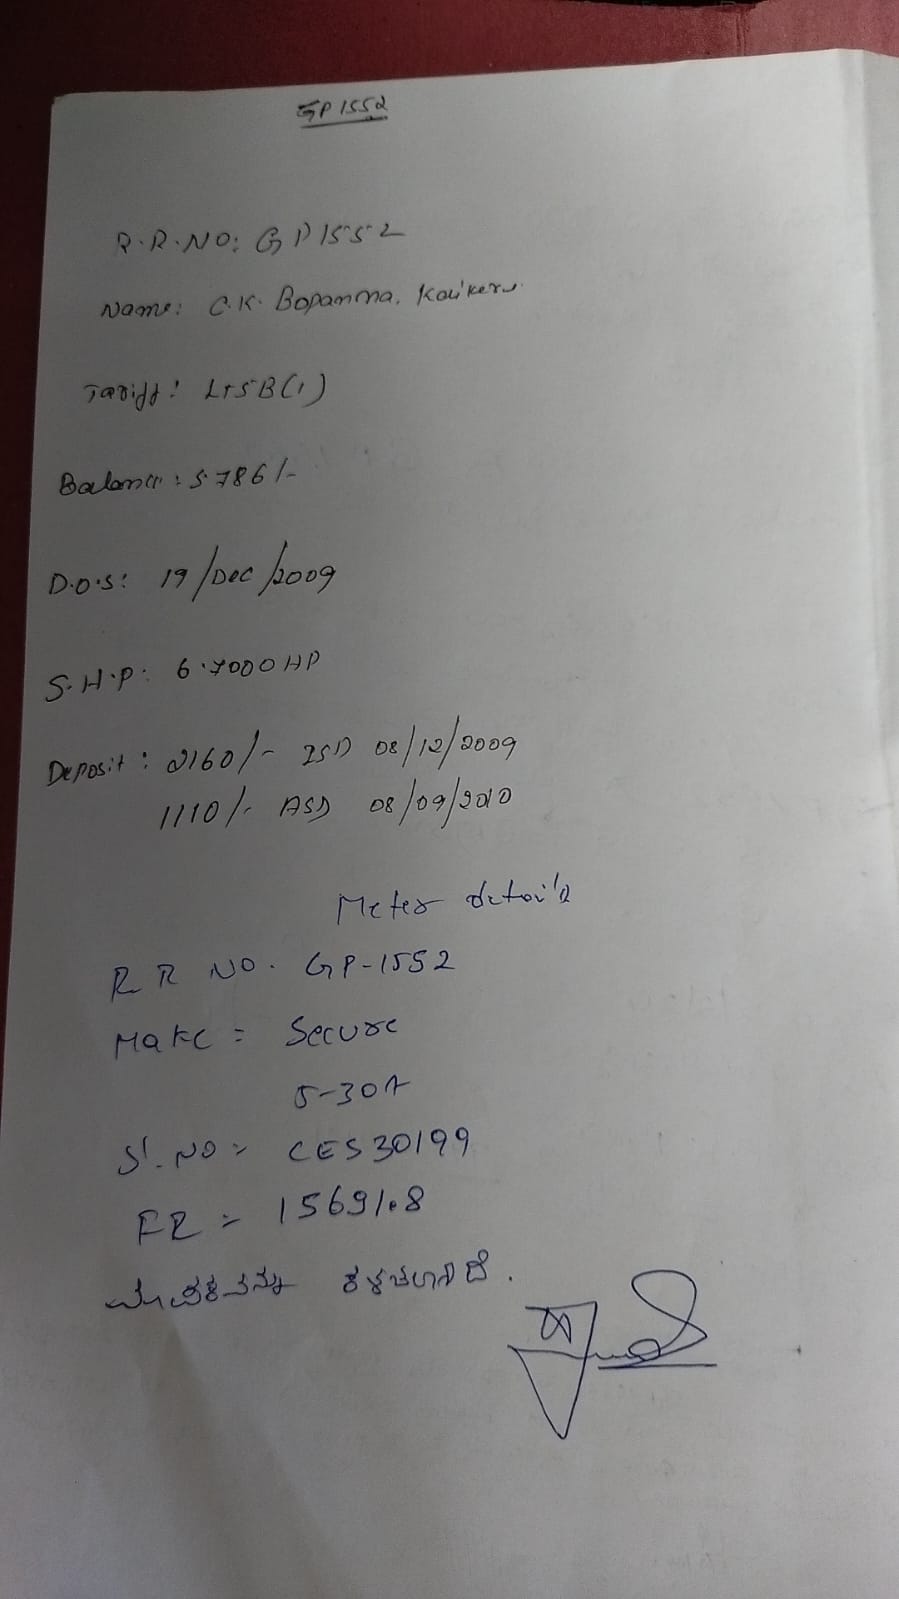 GP1552
R.R.NO: GP1552
Name: C.K. Bopanna, Kaikeru
Tariff: LT5B(1)
Balance: 5786/-
D.O.S: 19/Dec/2009
S.H.P: 6.7000HP
Deposit: 2160/- ISD 08/12/2009
1110/- ASD 08/09/2010
Meter details
RR NO. GP-1552
Make = Secure
5-30A
Sl. NO = CES30199
FR = 15691.8
ಮಾಪಕವನ್ನು ಕಳಚಲಾಗಿದೆ.